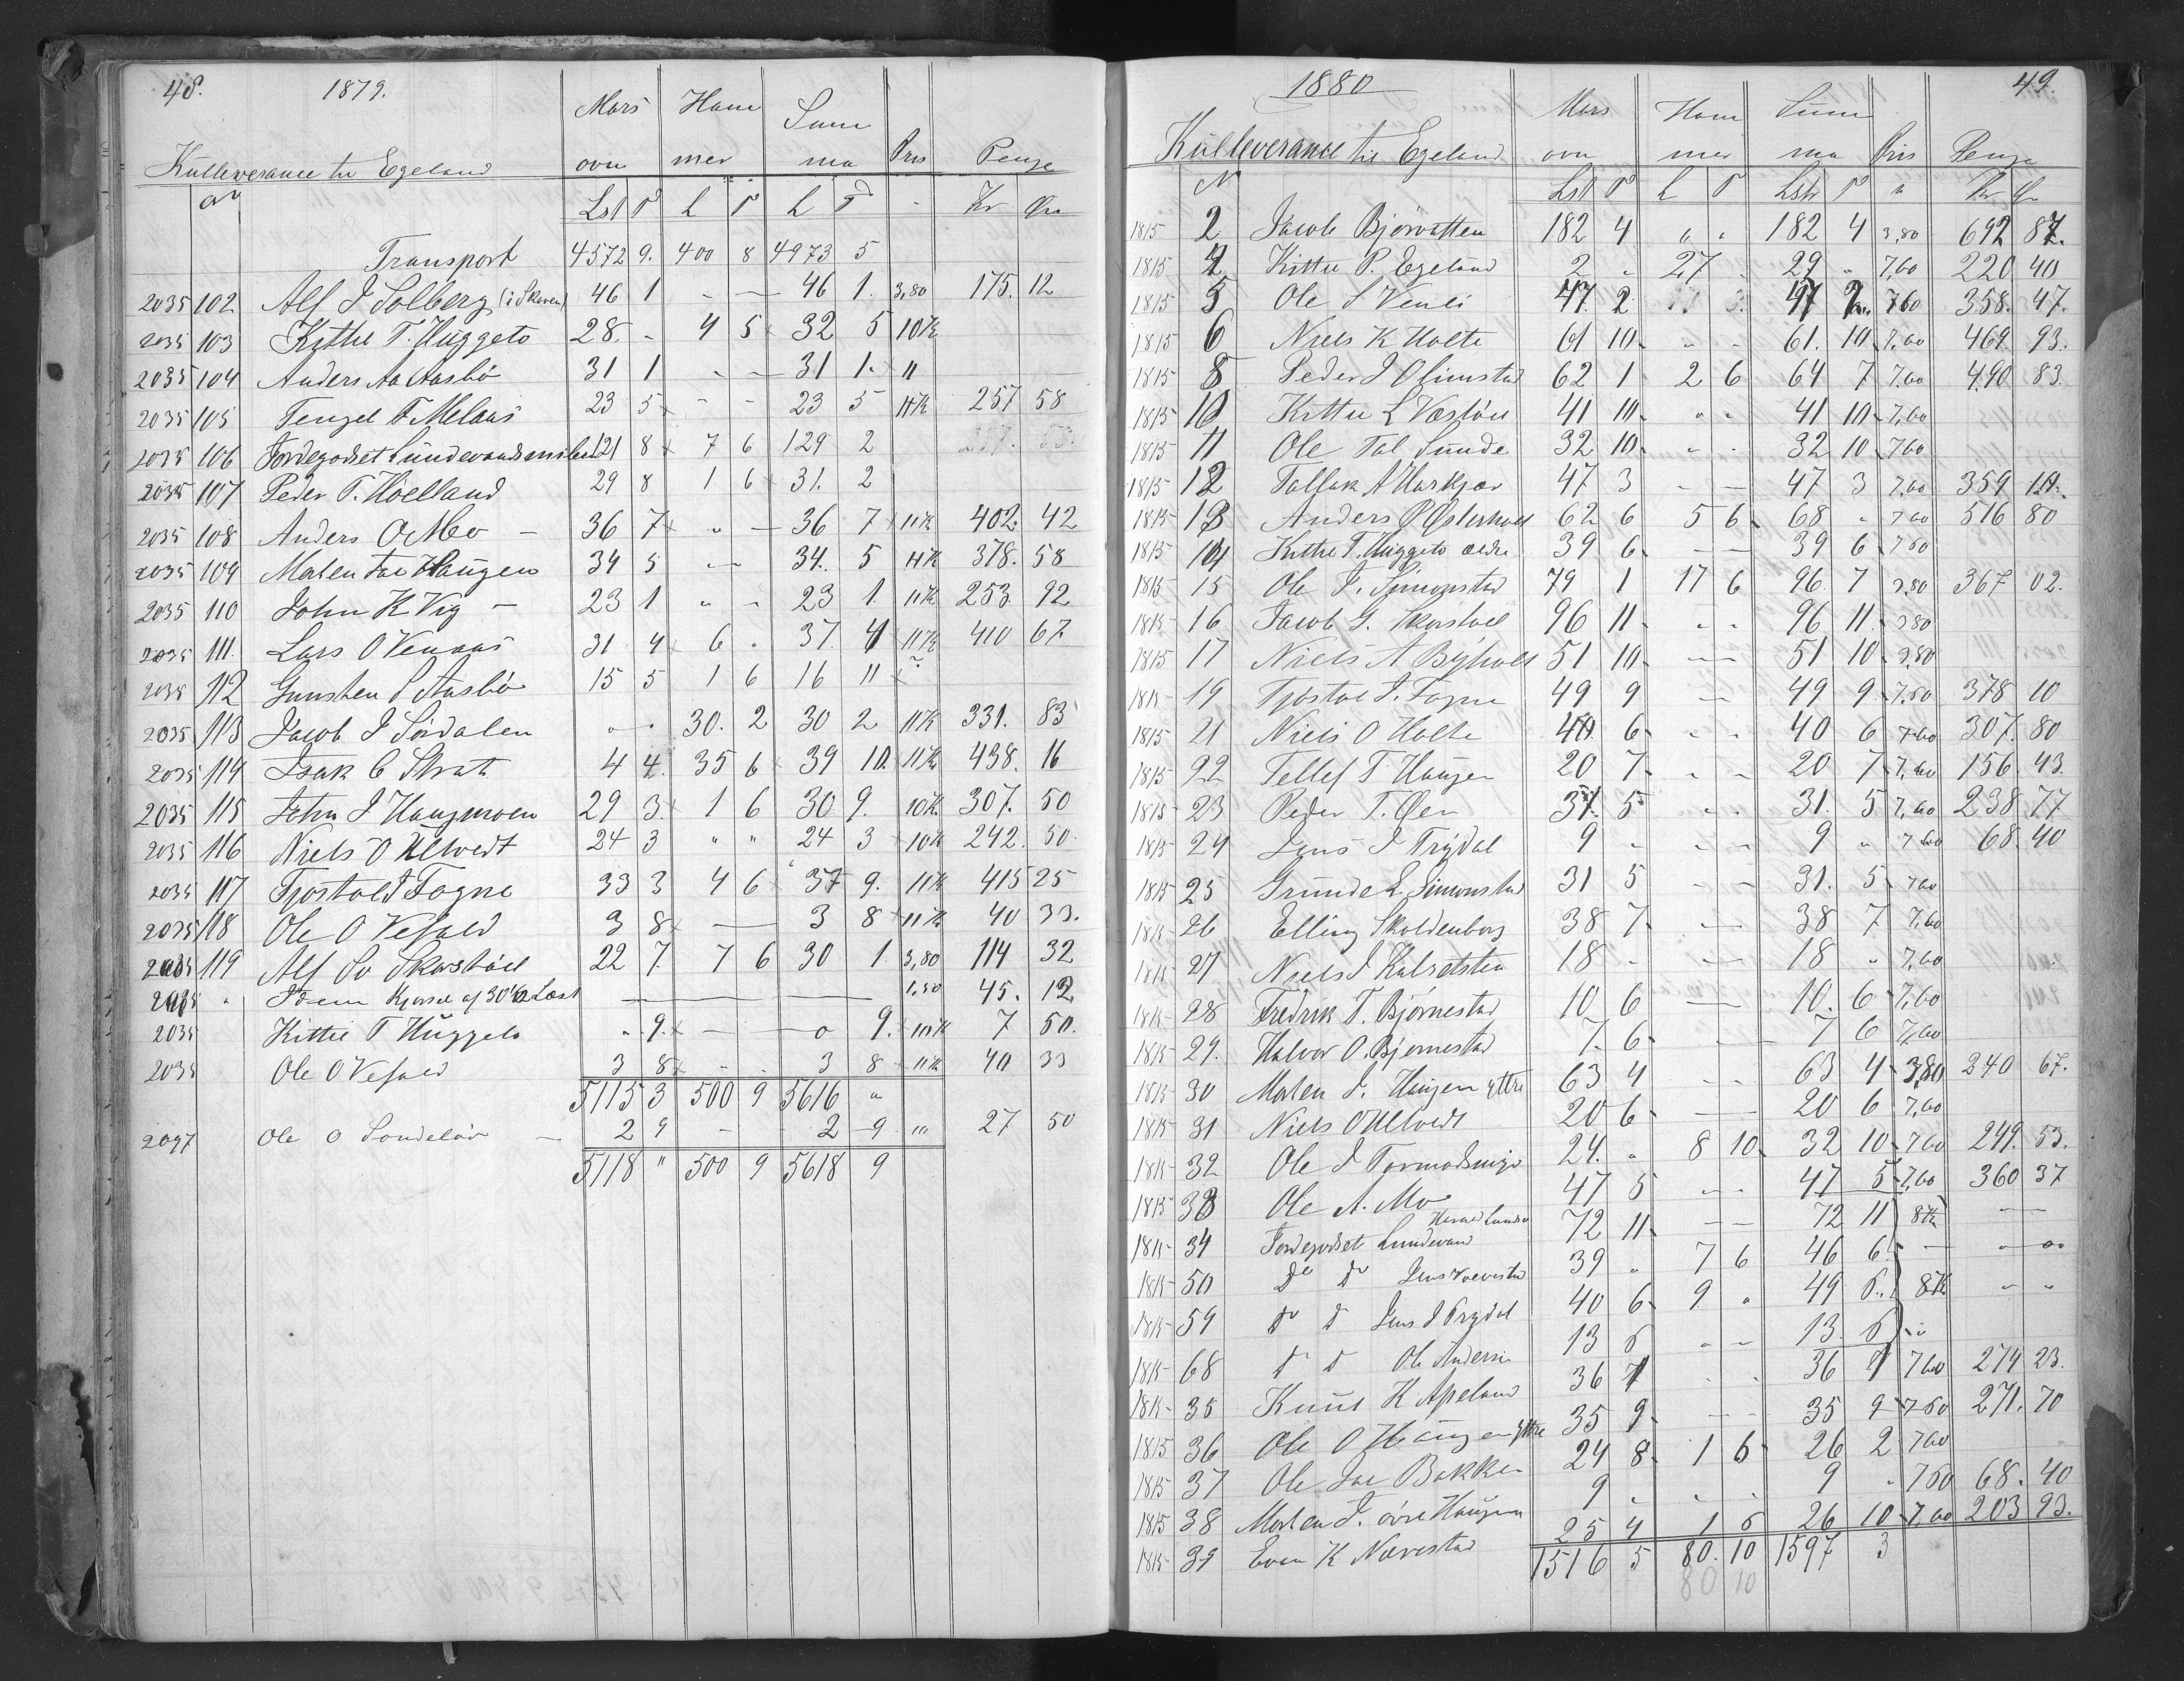 48. 1879.
Mars Ham Sum
Kulleverance til Egeland ovn mer ma Pris Penge
No Lst T L T L T - Kr Øre
Transport 4572 9. 400 8 4973 5
2035 102 Alf J Solberg (i Skoven) 46 1 - — 46 1. 3,80 175. 12
2035 103 Kittil T. Huggeto 28. - 4 5 32 5 10Kr
2035 104 Anders Aa Aasbö 31 1 - — 31 1. "
2035 105 Tengel F. Melaas 23 5 - - 23 5 11Kr 257 58
2035 106 Fordegodset Lundevands 121 8 7 6 129 2
2035 107 Peder T. Hoelland 29 8 1 6 31. 2
2035 108 Anders O Mo - 36 7 " — 36 7 11Kr 402. 42
2035 109 Morten Haugen 34 5 - — 34. 5 11Kr 378. 58
2035 110 John K Vig - 23 1 " - 23 1. 11Kr 253. 92
2035 111. Lars O Venaas 31 4 6 . 37. 4 11Kr 410 67.
2035 112 Gunsten S Aasbö 15 5 1 6 16 11
2035 113 Jacob J Sördalen " . 30. 2 30 2 11Kr 331. 83
2035 114 Isak C Strat 4 4. 35 6 39 10. 11Kr 438. 16
2035 115 John J Haugmoen 29 3. 1 6 30 9. 10Kr 307. 50
2035 116 Niels O Ulvedt 24 3 " " 24 3 10Kr 242. 50.
2035 117 Tjostol J Fogne 33 3 4 6 37 9. 11Kr 415 25
2035 118 Ole O Vefald 3 8 — 3 8 11Kr 40 33.
2035 119 Alf Sv Skorstöl 22 7. 7 6 30 1. 3,80 114 32
2035 " Idem Kjørsel af 30 1/12 Læst — 1,50 45. 12
2035 Kittil T Huggeto " 9. — o 9. 10Kr 7 50.
2035 Ole O Vefald 3 8 - . 3 8 11Kr 40 33
5115 3 500 9 5616 "
2097 Ole O Söndelöv — 2 9 - - 2 9 " 27 50
5118 " 500 9 5618 9
1880 49.
Mars Ham Sum
Kulleverance til Egeland ovn mer ma Pris Penge
N Lst T L T Lst T " Kr Ø
1815 2 Jacob Bjørvatten 182 4 " " 182 4 3,80 692 87.
1815 4 Kittil P. Egeland 2 " 27 . 29 " 7,60 220 40
1815 5 Ole S Venli 47. 2 47 2 7,60 358. 47.
1815 6 Niels K Holte 61 10 " - 61. 10 7,60 469. 93.
1815 8 Peder J Olimstad 62 1 2 6 64 7 7,60 490 83.
1815 10 Kittil L Vestöl 41 10 " " 41 10 7,60
1815 11 Ole Tal Sunde 32 10 " . 32 10 7,60
1815 12 Tallak A Harkjær 47 3 - — 47 3 7,60 359 10.
1815 13 Anders O Østerholt 62 6 5 6 68 " 7,60 516 80
1815 14 Kittil T. Huggeto ældre 39 6 — 39 6 7,60
1815 15 Ole J. Simonstad 79 1 17 6 96. 7 3,80 367 02.
1815 16 Jacob G. Skorstöl 96 11 " " 96 11 3,80
1815 17 Niels A Byholt 51 10 — 51 10 3,80
1815 19 Tjöstol J. Fogne 49 9 — 49 9 7,60 378 10
1815 21 Niels O Holte 40 6 " " 40 6 7,60 307. 80
1815 22 Tellef T Haugen 20 7 " - 20 7 7,60 156. 43.
1815 23 Peder T. Øen 31. 5 " . 31. 5 7,60 238 77
1815 24 Jens J Trydal 9 " " - 9 " 7,60 68. 40
1815 25 Grunde L. Simonstad 31 5 - - 31. 5 7,60
1815 26 Elling Skoldenborg 38 7 — 38 7 7,60
1815 27 Niels J 18 " — 18 " 7,60
1815 28 Fredrik T. Bjørnestad 10 6 — 10. 6 7,60
1815 29. Halvor O. Bjørnestad 7. 6 - - 7 6 7,60
1815 30 Morten J. Haugen yttre 63 4 - - 63 4 3,80 240 67.
1815 31 Niels O Ulvedt 20 6 — 20 6 7,60
1815 32 Ole J Tormodsmyr 24. " 8 10 32 10 7,60 249. 53.
1815 33 Ole A. Mo 47 5 - - 47 5 7,60 360 37
1815 34 Fordegodset Lundevand 72 11 - - 72 11 8Kr —
1815 50 Do Do Jens Nævestad 39 " 7 6 46 6 - —
1815 59 Do D Jens J Trydal 40 6 9 " 49 6 8Kr " "
1815 68 D D Ole Anderss 13 6 " - 13. 6
1815 35 Knut K Apeland 36 1 . . 36 1 7,60 274 23.
1815 36 Ole O Haugen yttre 35 9 - - 35 9 7,60 271. 70
1815 37 Ole Bakken 24 8 1 6 26 2 7,60
1815 38 Morten J. övre Haugen 9 " " . 9 " 7,60 68. 40
1815 39 Even K Nævestad 25 4 1 6 26 10 7,60 203 93.
1516 5 80. 10 1597 3
80 10